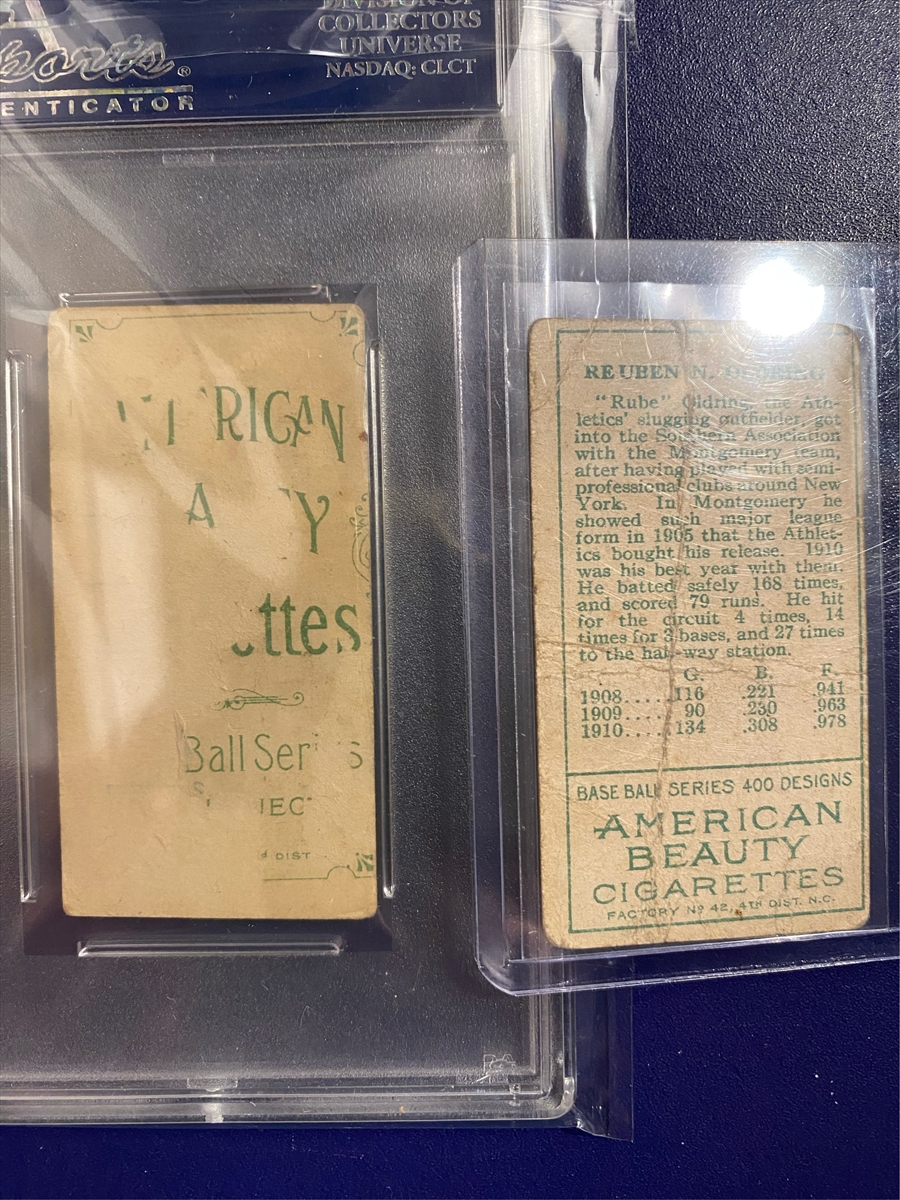 DIVISION OF
COLLECTORS
UNIVERSE
NASDAQ: CLCT
ports®
ENTICATOR
RICAN
A Y
ttes
Ball Ser s
IEC
DIST
REUBEN N. OLDRING
"Rube" Oldring, the Ath-
letics' slugging outfielder, got
into the Southern Association
with the Montgomery team,
after having played with semi-
professional clubs around New
York. In Montgomery he
showed such major league
form in 1905 that the Athlet-
ics bought his release. 1910
was his best year with them.
He batted safely 168 times,
and scored 79 runs. He hit
for the circuit 4 times, 14
times for 3 bases, and 27 times
to the half-way station.
G. B. F.
1908.....116 .221 .941
1909.... 90 .230 .963
1910.....134 .308 .978
BASE BALL SERIES 400 DESIGNS
AMERICAN
BEAUTY
CIGARETTES
FACTORY Nº 42, 4TH DIST. N.C.